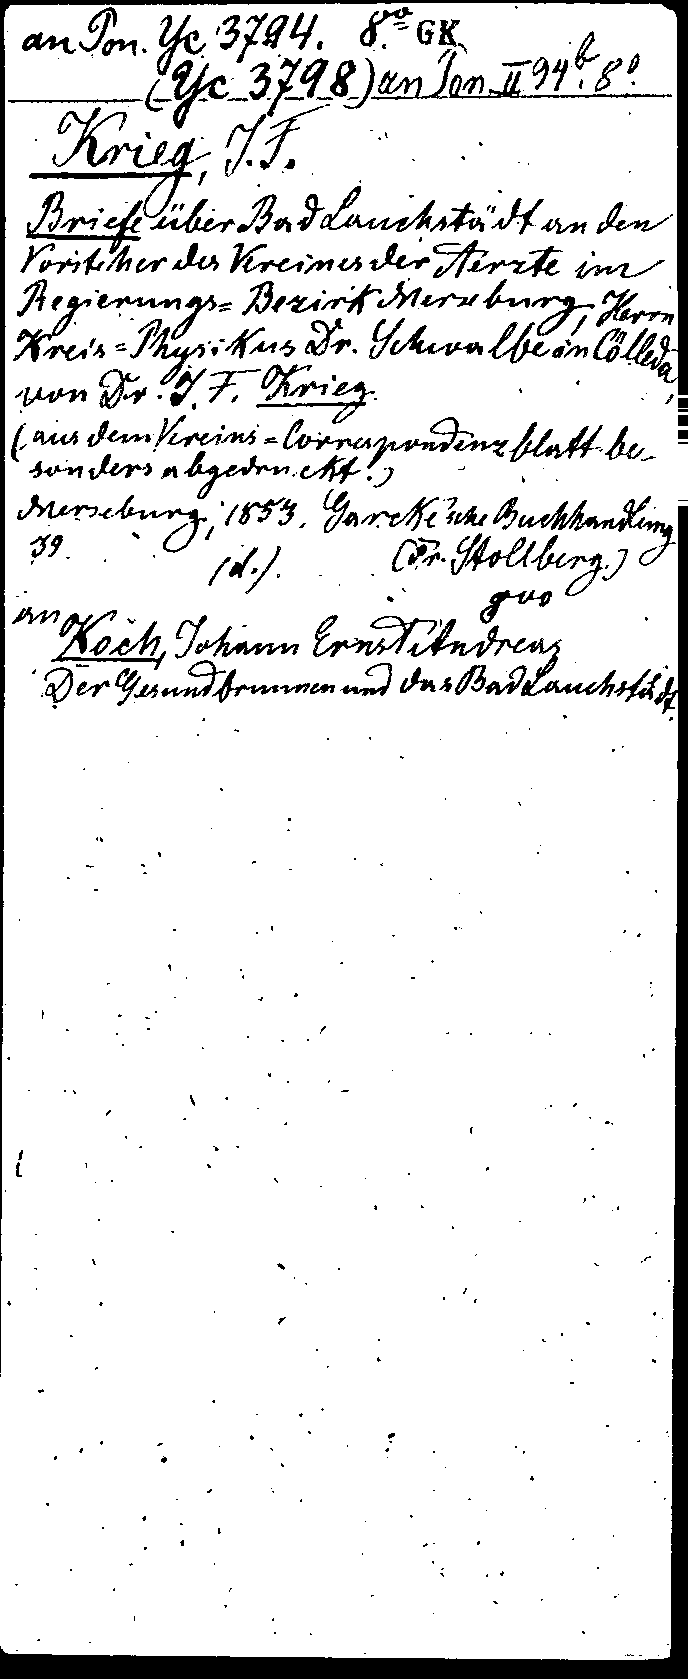 an Pon. Yc 3794. 8.vo GK
(Yc 3798) an Pon. II 94b. 8o.
Krieg, J. F.
Briefe über Bad Lauchstädt an den
Vorsteher des Vereines der Aerzte im
Regierungs=Bezirk Merseburg, Herrn
Kreis=Physikus Dr. Schwalbe in Cölleda,
von Dr. J. F. Krieg.
(aus dem Vereins=Correspondenzblatt be-
sonders abgedruckt.)
Merseburg, 1853. Garcke'sche Buchhandlung
39 (Fr. Stollberg.)
(d.).
8vo
an
Koch, Johann Ernst Andreas
Der Gesundbrunnen und das Bad Lauchstädt.